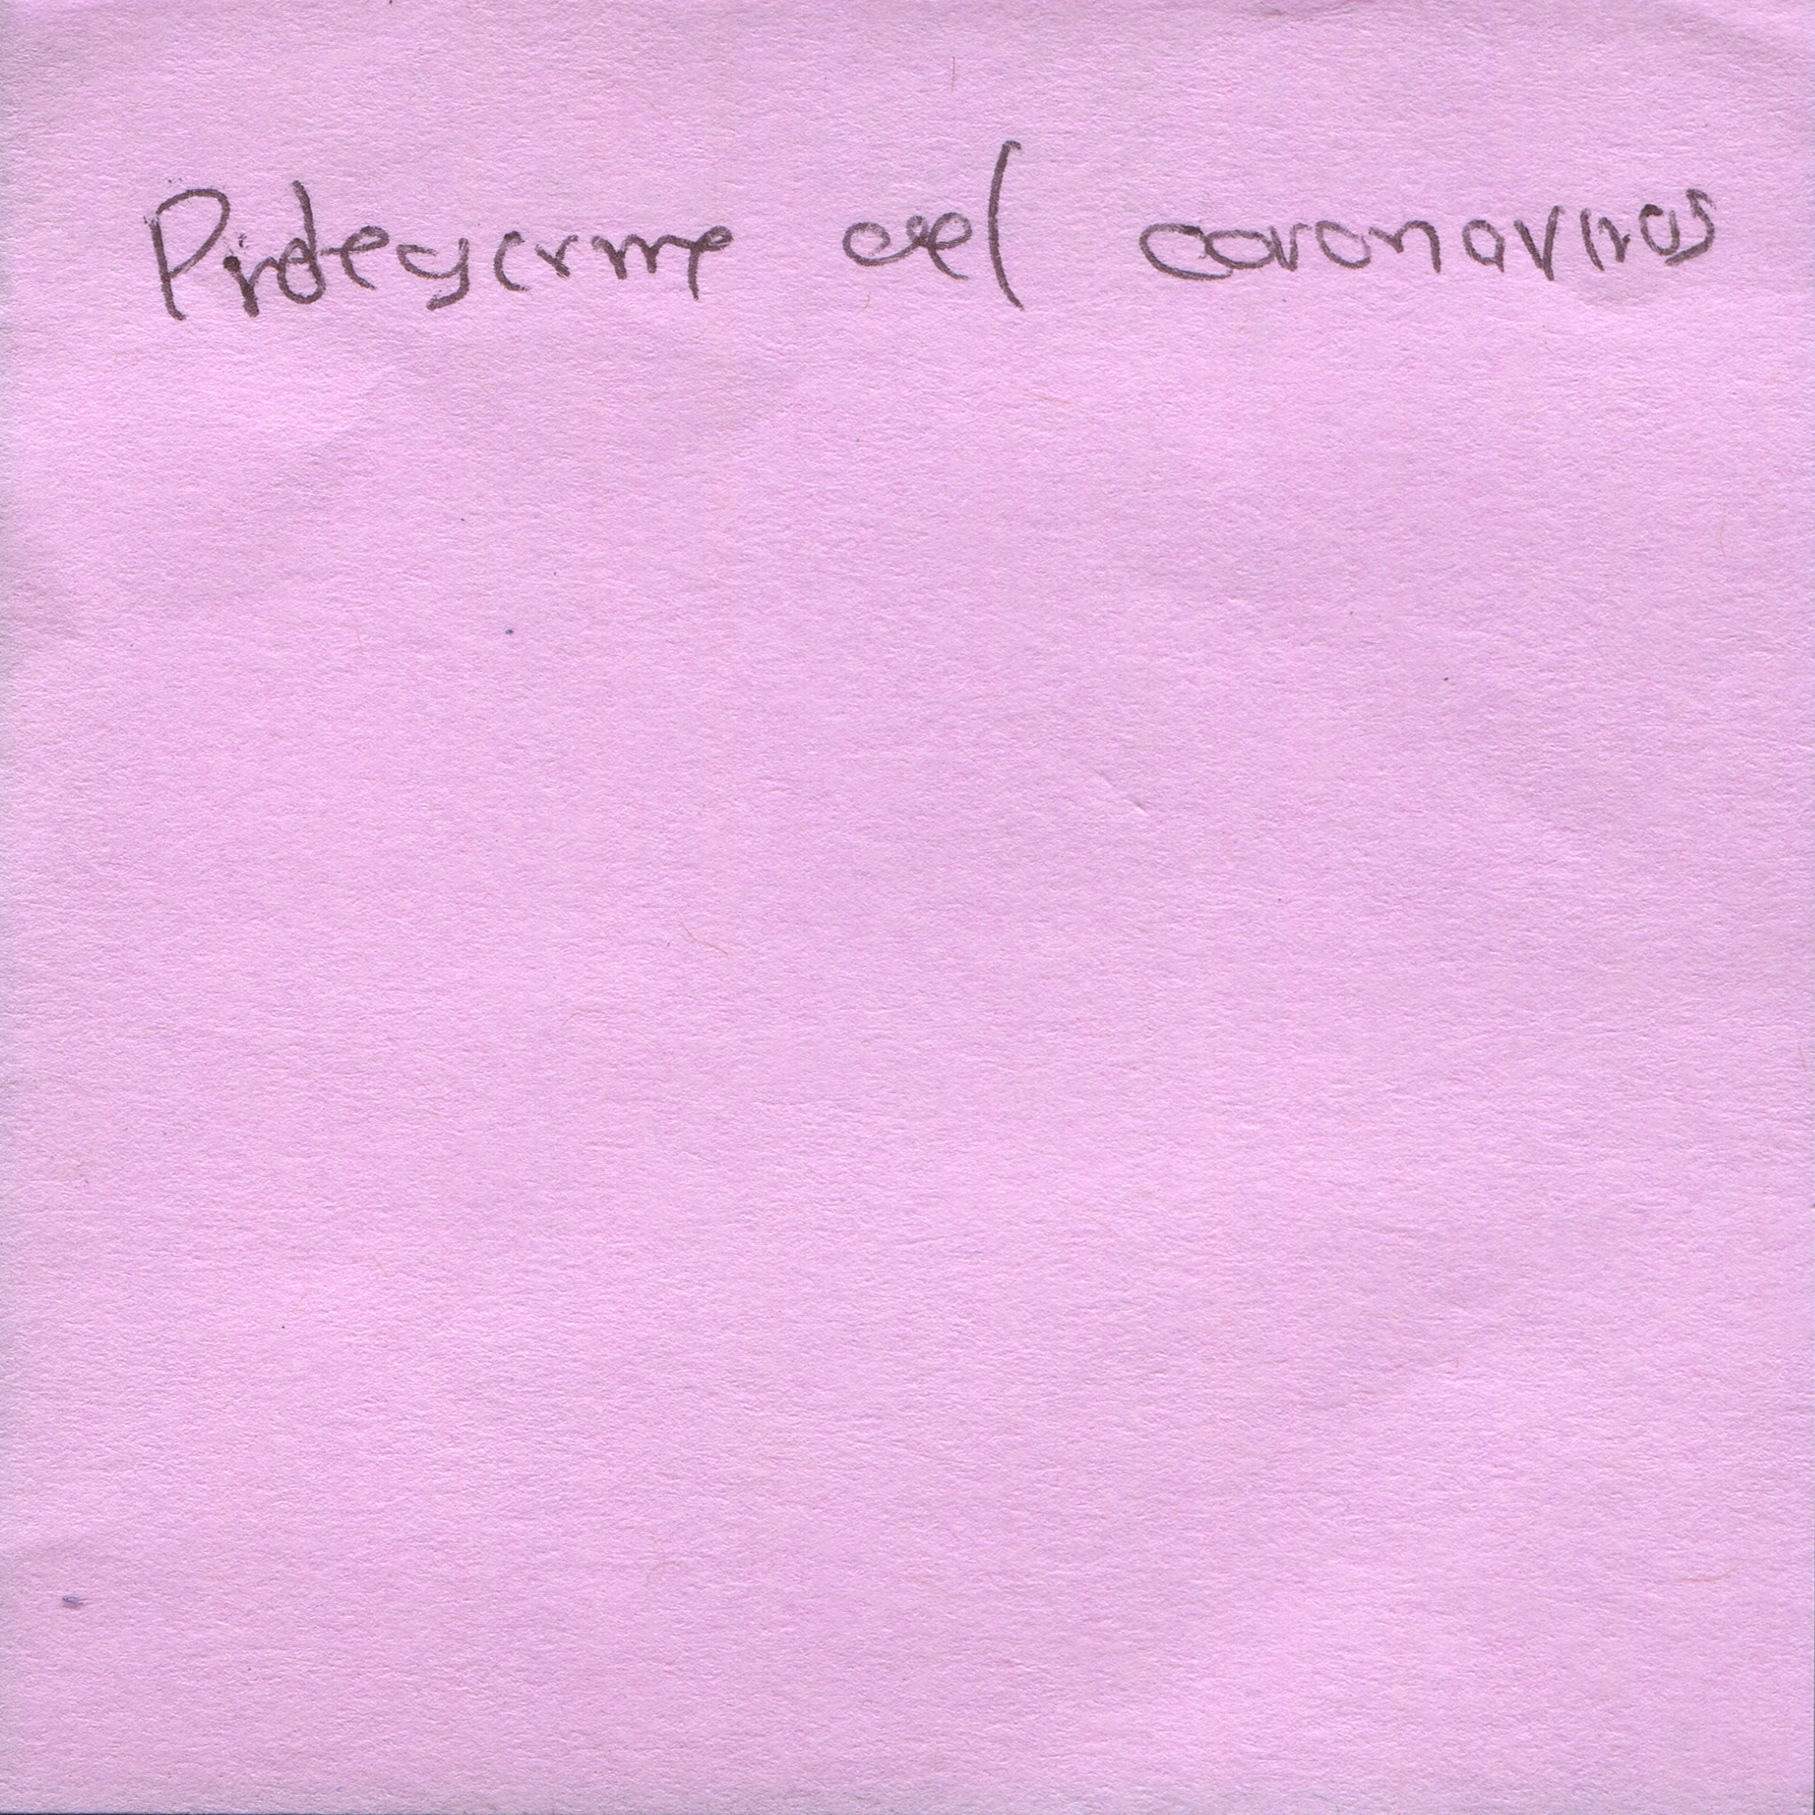 Protegerme del coronavirus